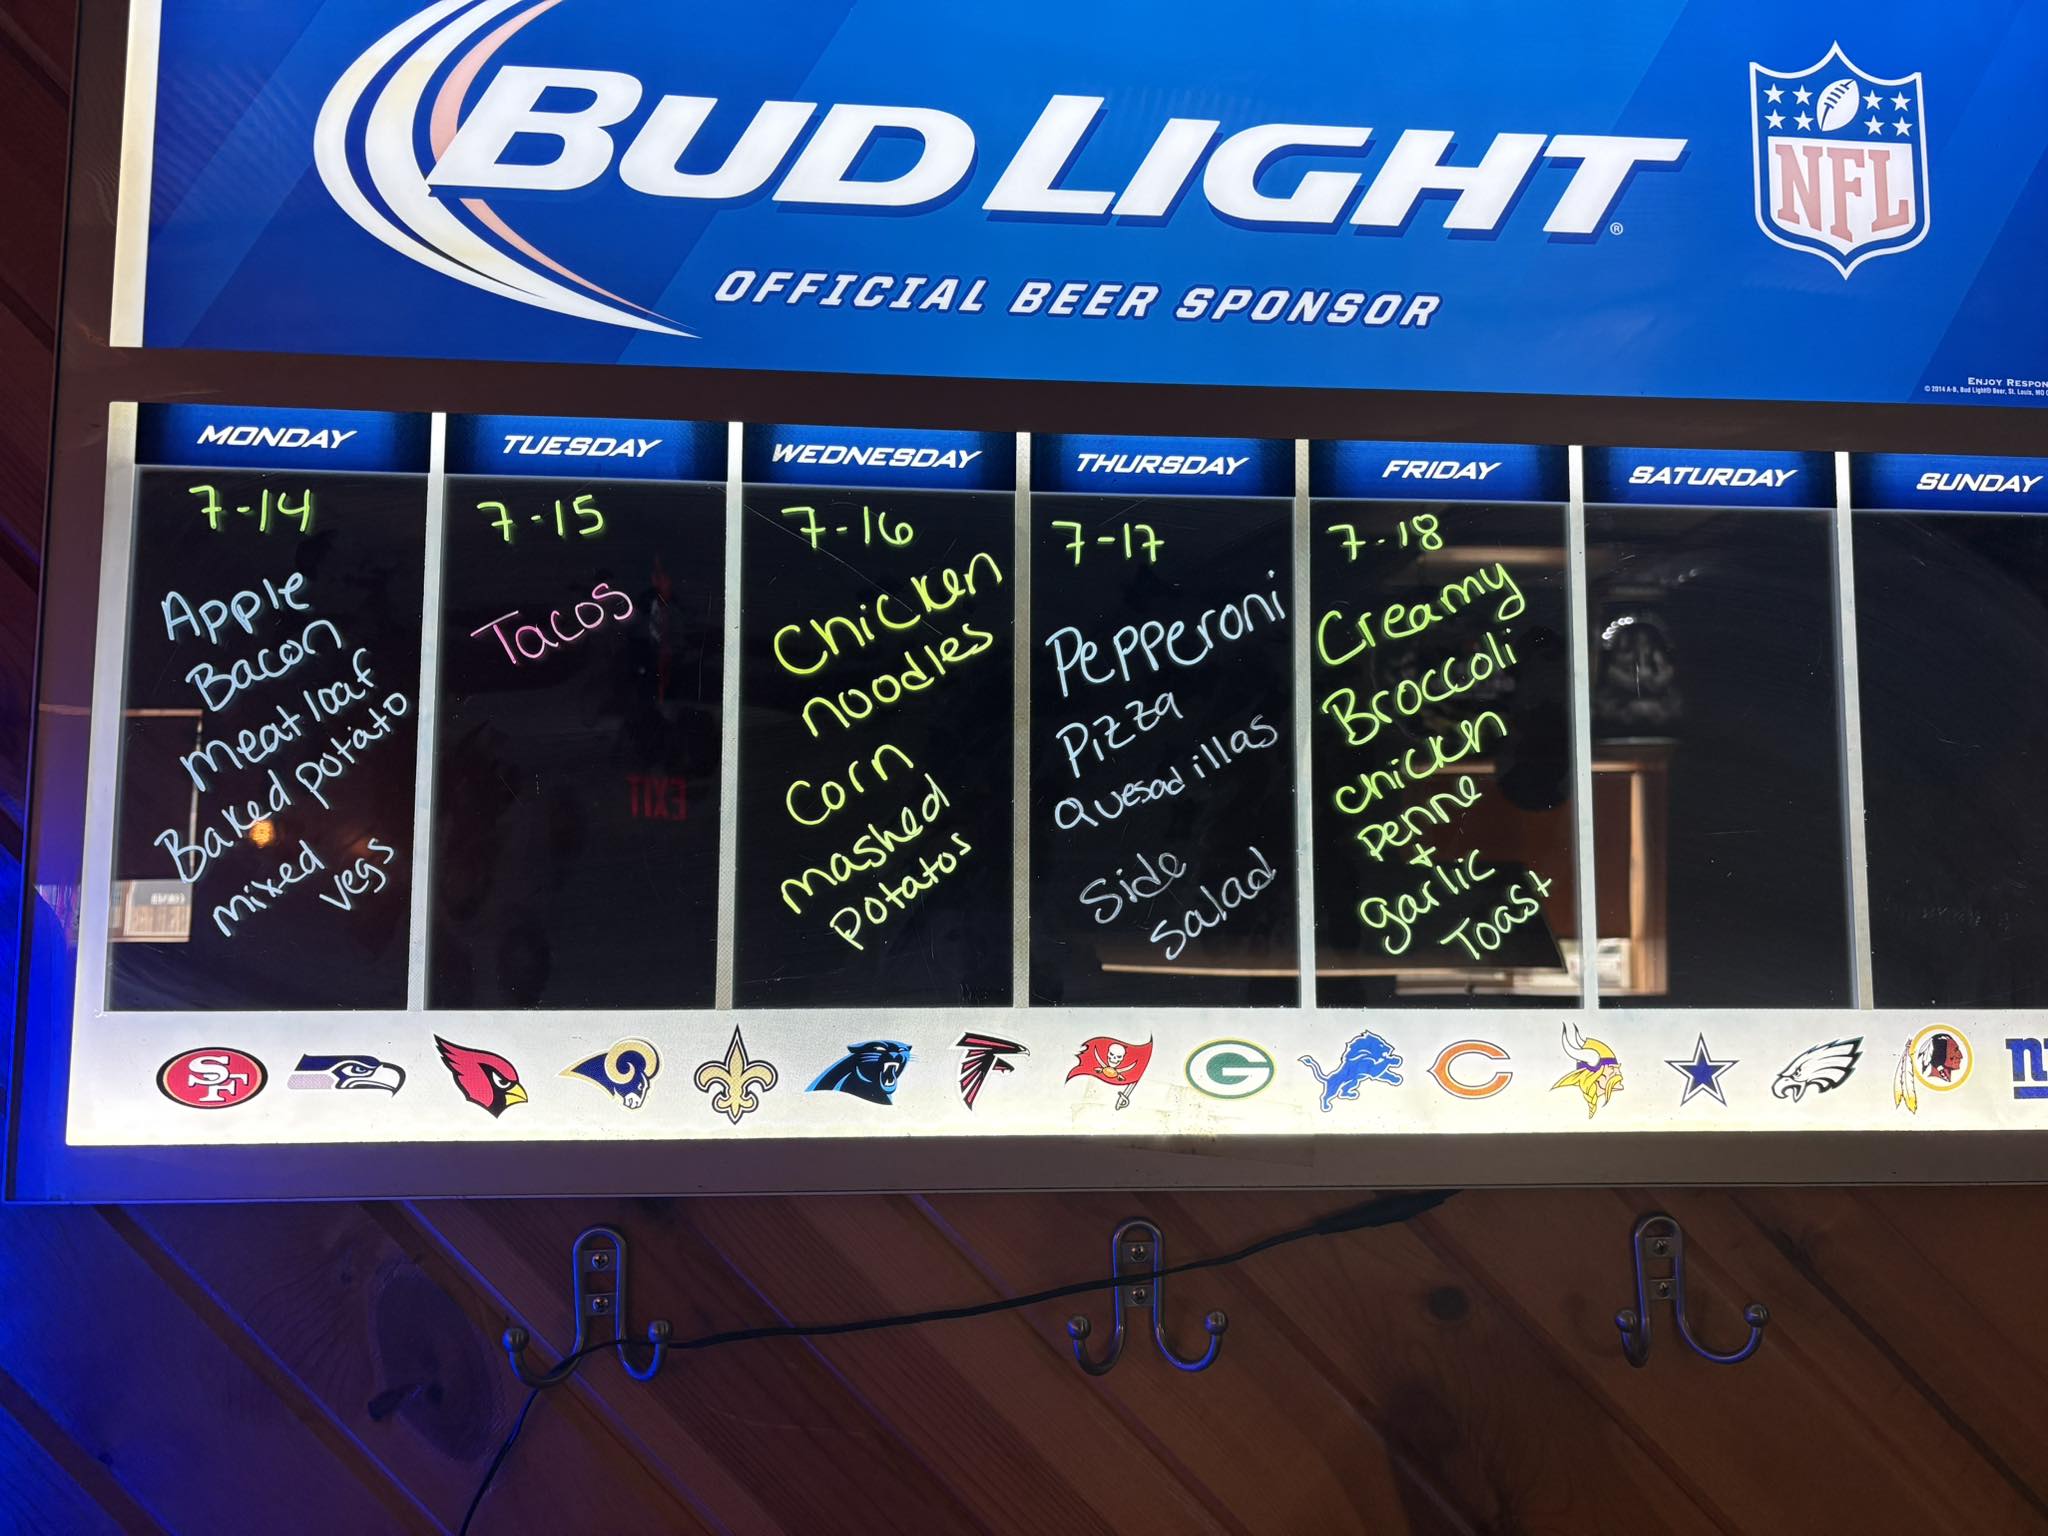 BUD LIGHT®
NFL
OFFICIAL BEER SPONSOR
ENJOY RESPON
© 2014 A-B, Bud Light® Beer, St. Louis, MO
MONDAY
7-14
Apple
Bacon
meat loaf
Baked potato
mixed
vegs
TUESDAY
7-15
Tacos
EXIT
WEDNESDAY
7-16
Chicken
noodles
Corn
mashed
potatos
THURSDAY
7-17
Pepperoni
Pizza
Quesadillas
Side
salad
FRIDAY
7-18
Creamy
Broccoli
chicken
Penne
+
garlic
Toast
SATURDAY
SUNDAY
SF
G
C
ny